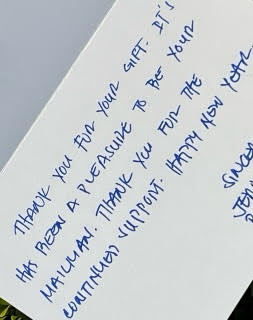 THANK YOU FOR YOUR GIFT. IT'S
HAS BEEN A PLEASURE TO BE YOUR
MAILMAN. THANK YOU FOR THE
CONTINUED SUPPORT. HAPPY NEW YEAR